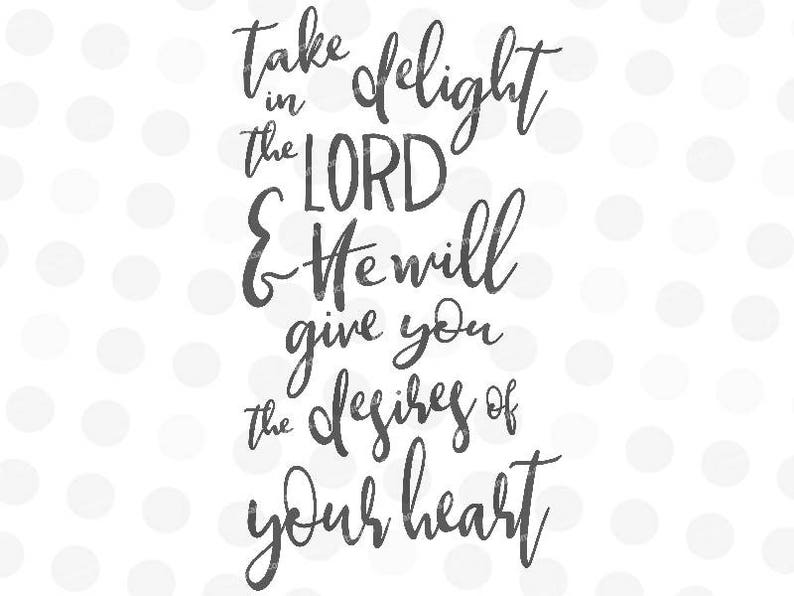 take delight
in
the LORD
& He will
give you
the desires of
your heart